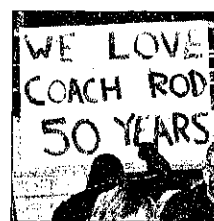 WE LOVE
COACH ROD
50 YEARS